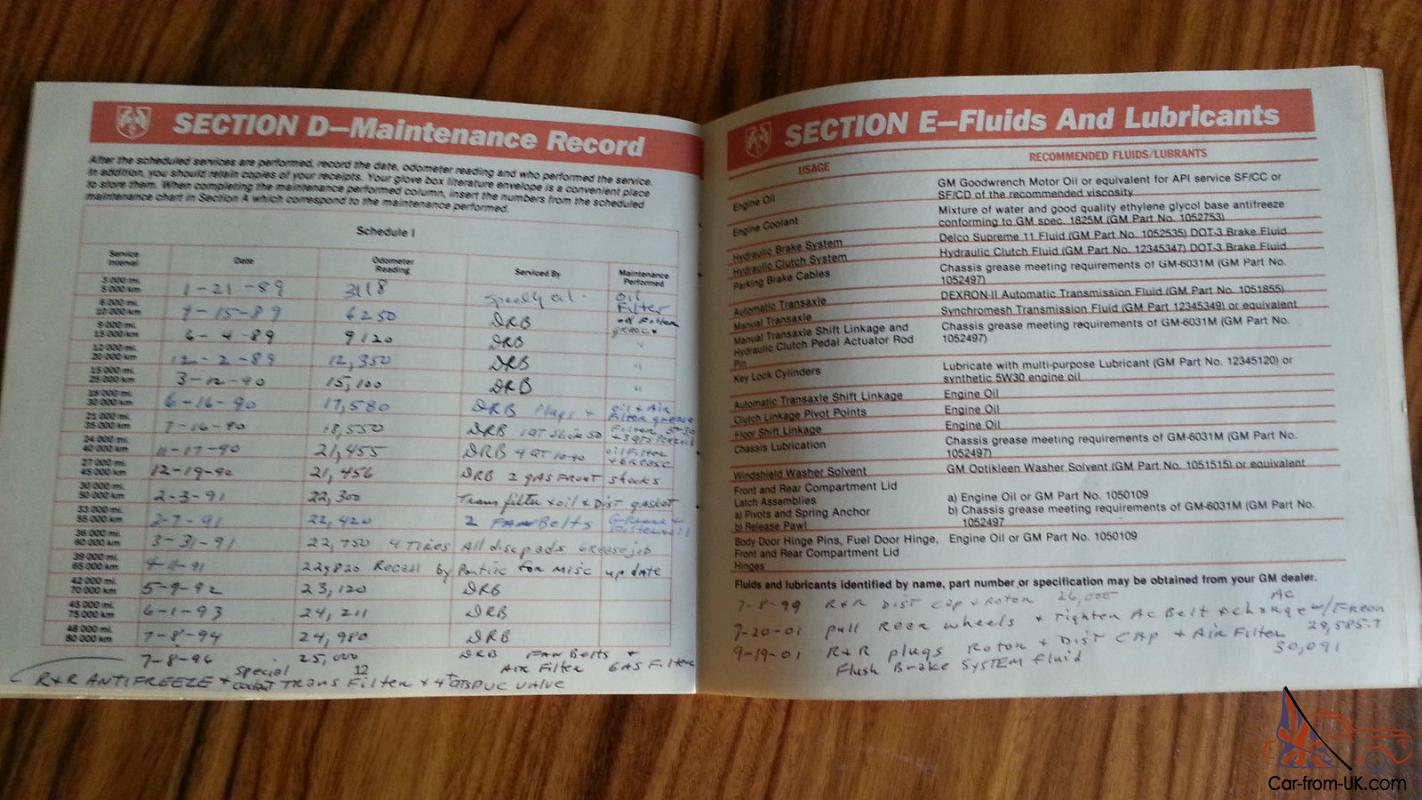 SECTION D—Maintenance Record
After the scheduled services are performed, record the date, odometer reading and who performed the service.
In addition, you should retain copies of your receipts. Your glove box literature envelope is a convenient place
to store them. When completing the maintenance performed column, insert the numbers from the scheduled
maintenance chart in Section A which correspond to the maintenance performed.
Schedule I
Service Interval Date Odometer Reading Serviced By Maintenance Performed
3 000 mi. 5 000 km 1-21-89 3118 Speedy oil oil Filter
6 000 mi. 10 000 km -15-89 6250 DRB oil Filter
9 000 mi. 15 000 km 6-4-89 9120 DRB "
12 000 mi. 20 000 km 12-2-89 12,350 DRB "
15 000 mi. 25 000 km 3-12-90 15,100 DRB "
18 000 mi. 30 000 km 6-16-90 17,580 DRB Plugs + oil + Air Filter grease
21 000 mi. 35 000 km 7-16-90 18,550 DRB 1QT Slick 50 Filter
24 000 mi. 40 000 km 11-17-90 21,455 DRB 4 QT 10-40 oil Filter + Grease
27 000 mi. 45 000 km 12-19-90 21,456 DRB 2 GAS FRONT Shocks
30 000 mi. 50 000 km 2-3-91 22,300 Trans filter + oil & Dist gasket
33 000 mi. 55 000 km 2-7-91 22,420 2 FAN Belts
36 000 mi. 60 000 km 3-31-91 22,750 4 Tires All disc pads Grease job
39 000 mi. 65 000 km 22,820 Recall by Pontiac for misc up date
42 000 mi. 70 000 km 5-9-92 23,120 DRB
45 000 mi. 75 000 km 6-1-93 24,211 DRB
48 000 mi. 80 000 km 7-8-94 24,980 DRB
7-8-96 25,000 DRB FAN Belts +
Special 12 Air Filter GAS Filter
R+R ANTIFREEZE + Trans Filter + 4 QTS PVC VALVE
SECTION E—Fluids And Lubricants
USAGE RECOMMENDED FLUIDS/LUBRANTS
Engine Oil GM Goodwrench Motor Oil or equivalent for API service SF/CC or
SF/CD of the recommended viscosity
Engine Coolant Mixture of water and good quality ethylene glycol base antifreeze
conforming to GM spec. 1825M (GM Part No. 1052753)
Hydraulic Brake System Delco Supreme 11 Fluid (GM Part No. 1052535) DOT-3 Brake Fluid
Hydraulic Clutch System Hydraulic Clutch Fluid (GM Part No. 12345347) DOT-3 Brake Fluid
Parking Brake Cables Chassis grease meeting requirements of GM-6031M (GM Part No.
1052497)
Automatic Transaxle DEXRON-II Automatic Transmission Fluid (GM Part No. 1051855)
Manual Transaxle Synchromesh Transmission Fluid (GM Part 12345349) or equivalent
Manual Transaxle Shift Linkage and Chassis grease meeting requirements of GM-6031M (GM Part No.
Hydraulic Clutch Pedal Actuator Rod 1052497)
Pin
Key Lock Cylinders Lubricate with multi-purpose Lubricant (GM Part No. 12345120) or
synthetic 5W30 engine oil
Automatic Transaxle Shift Linkage Engine Oil
Clutch Linkage Pivot Points Engine Oil
Floor Shift Linkage Engine Oil
Chassis Lubrication Chassis grease meeting requirements of GM-6031M (GM Part No.
1052497)
Windshield Washer Solvent GM Optikleen Washer Solvent (GM Part No. 1051515) or equivalent
Front and Rear Compartment Lid
Latch Assemblies
a) Pivots and Spring Anchor a) Engine Oil or GM Part No. 1050109
b) Release Pawl b) Chassis grease meeting requirements of GM-6031M (GM Part No.
1052497
Body Door Hinge Pins, Fuel Door Hinge, Engine Oil or GM Part No. 1050109
Front and Rear Compartment Lid
Hinges
Fluids and lubricants identified by name, part number or specification may be obtained from your GM dealer.
7-8-99 R+R DIST CAP + Rotor 26,000 AC
7-20-01 pull Rear wheels + Tighten AC Belt + change w/Freon
29,585.7
9-19-01 R+R plugs Rotor + DIST CAP + Air Filter 30,091
Flush Brake SYSTEM fluid
Car-from-UK.com